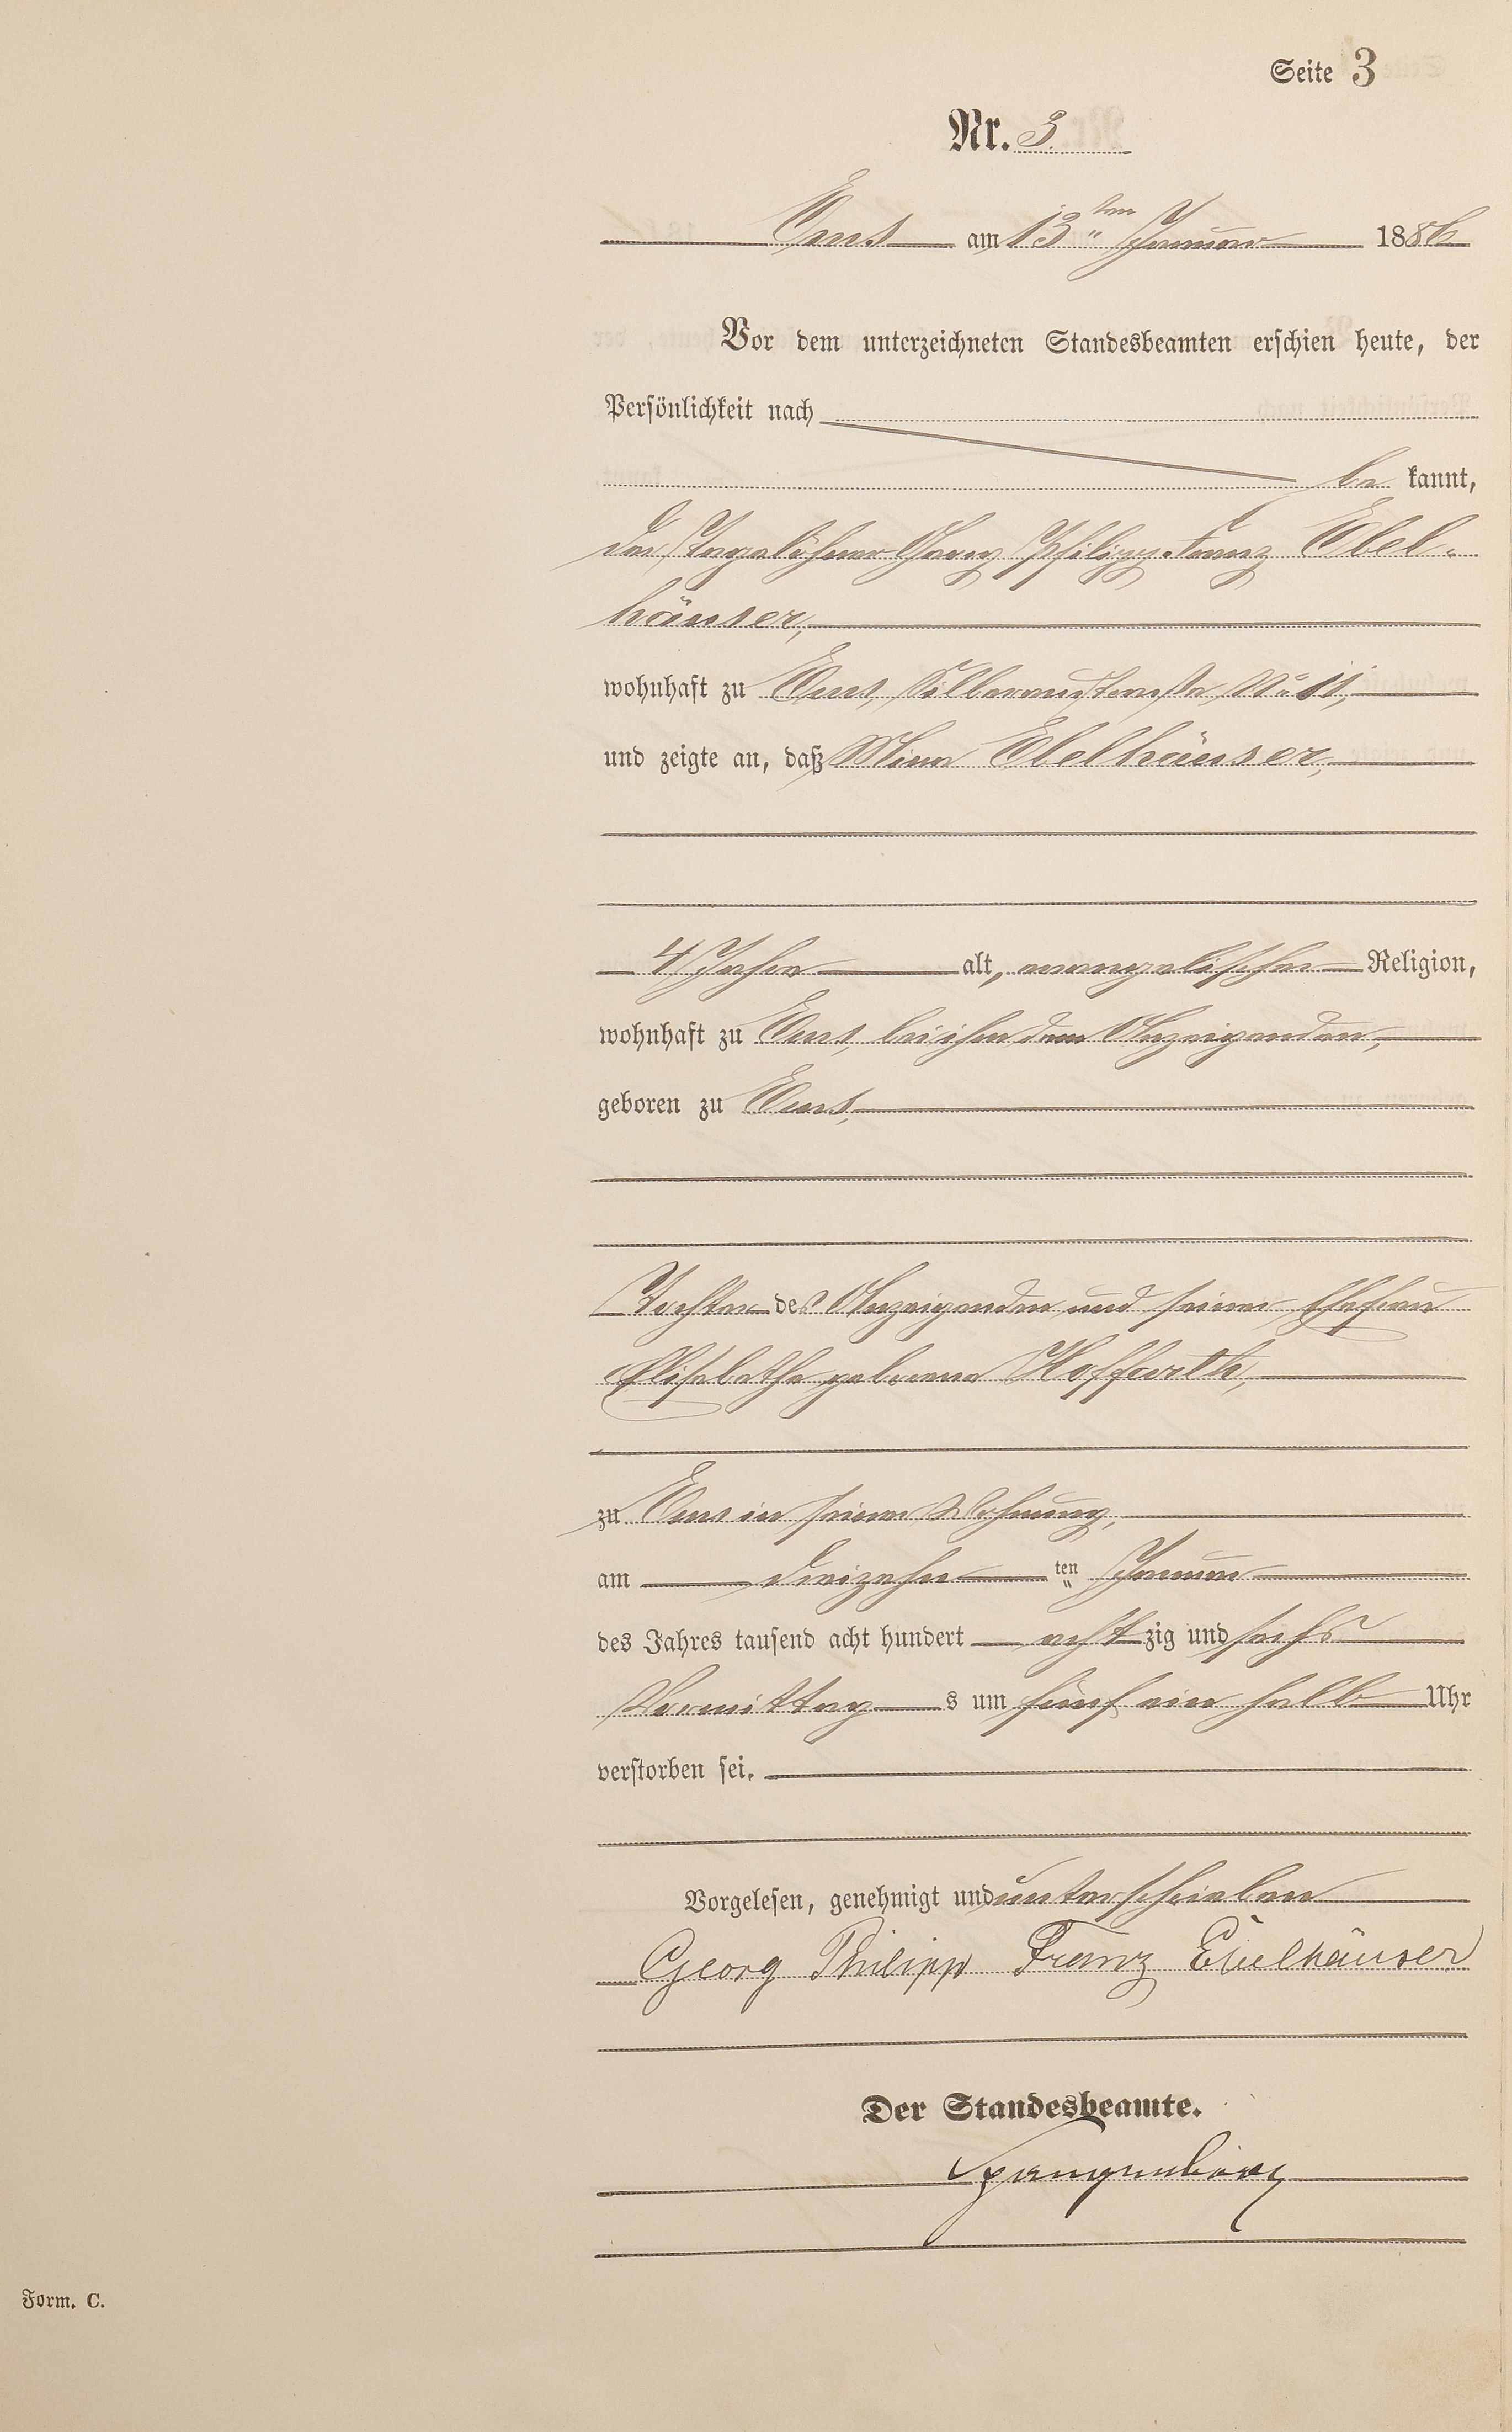 Seite 3
Nr. 3.
Ems am 13ten Januar 1886
Vor dem unterzeichneten Standesbeamten erschien heute, der
Persönlichkeit nach
be kannt,
der Tagelöhner Georg Philipp Franz Ebel-
häuser,
wohnhaft zu Ems, Silberaustraße No 11,
und zeigte an, daß Mina Ebelhäuser,
4 Jahre alt, evangelischer Religion,
wohnhaft zu Ems, bei ihm dem Anzeigenden,
geboren zu Ems,
Tochter des Anzeigenden und seiner Ehefrau
Elisabethe geborene Hoffarth,
zu Ems in seiner Wohnung,
am dreizehn ten Januar
des Jahres tausend acht hundert acht zig und sechs
Vormittag s um fünf ein halb Uhr
verstorben sei.
Vorgelesen, genehmigt und unterschrieben
Georg Philipp Franz Ebelhäuser
Der Standesbeamte.
Spangenberg
Form. C.